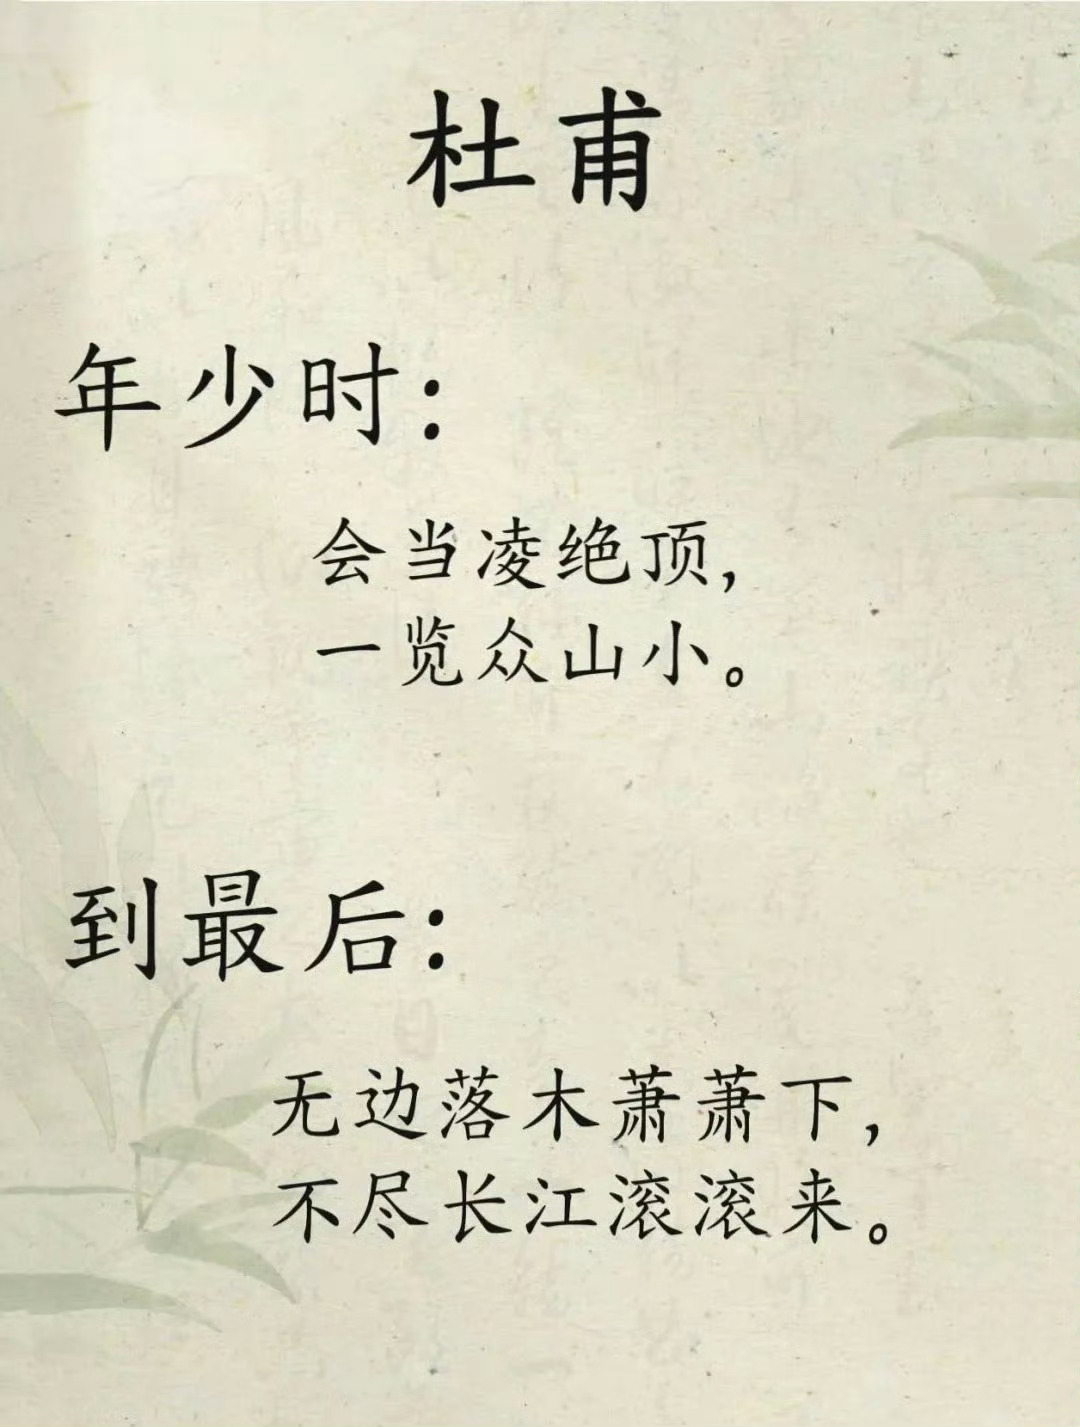 杜甫
年少时：
会当凌绝顶，
一览众山小。
到最后：
无边落木萧萧下，
不尽长江滚滚来。